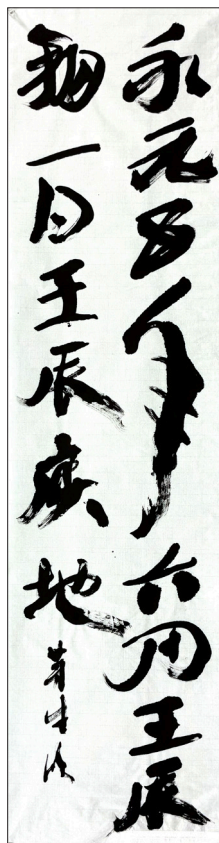 永元五年六月壬辰
朔一日壬辰廣地